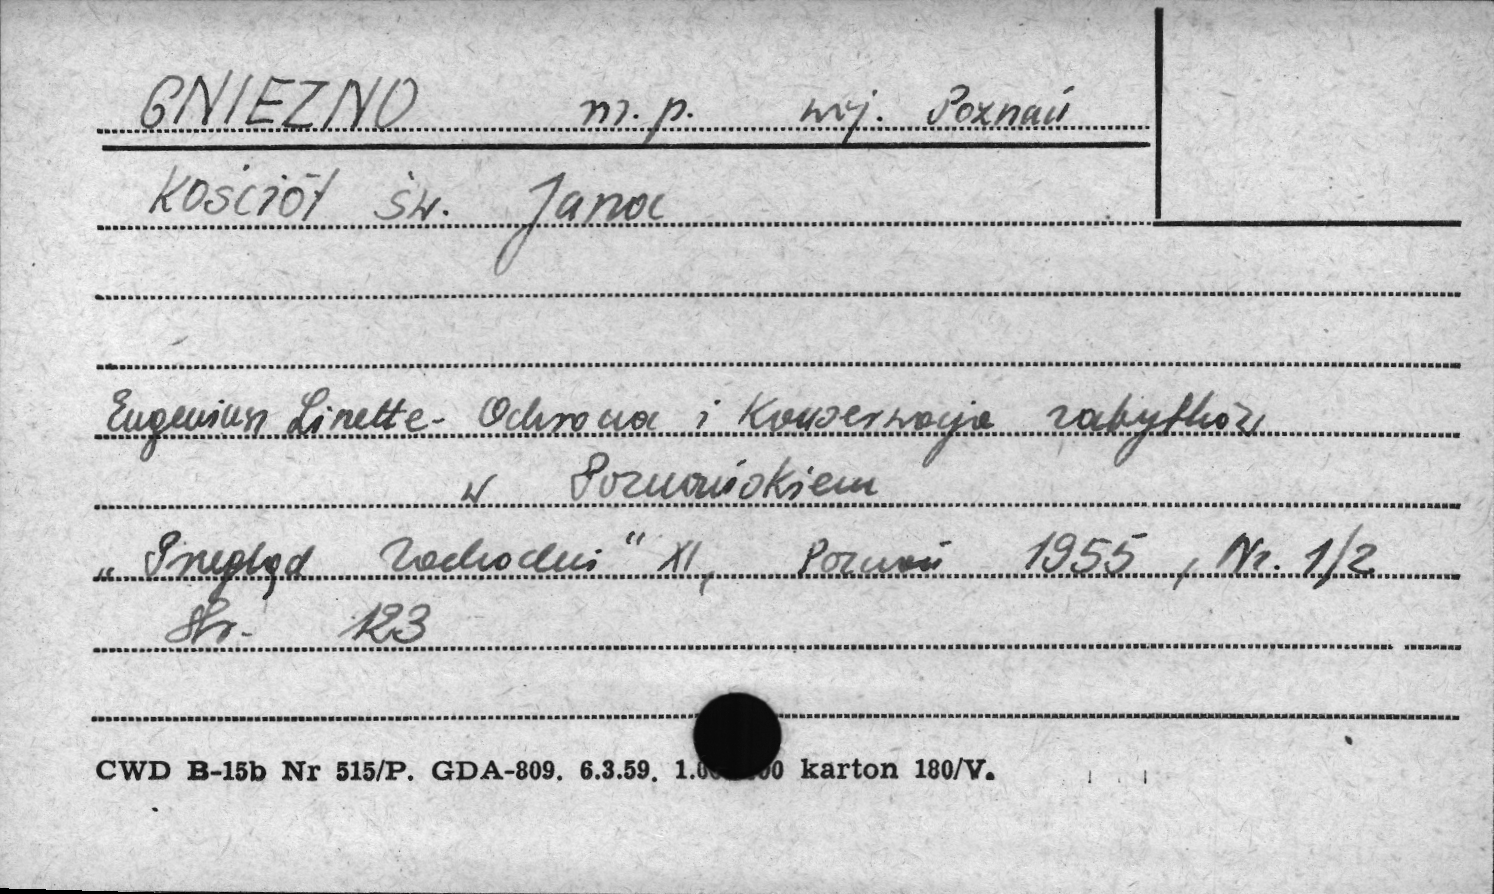 GNIEZNO m.p. woj. Poznań
Kościół św. Jana
Eugeniusz Linette - Ochrona i Konserwacja zabytków
w Poznańskiem
„Przegląd Zachodni" XI, Poznań 1955, Nr. 1/2
Str. 123
CWD B-15b Nr 515/P. GDA-809. 6.3.59. karton 180/V.